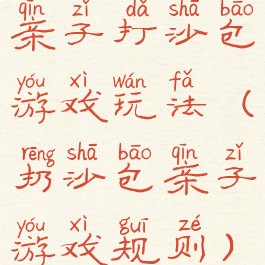 qīn zǐ dǎ shā bāo
亲子打沙包
yóu xì wán fǎ
游戏玩法（
rēng shā bāo qīn zǐ
扔沙包亲子
yóu xì guī zé
游戏规则）